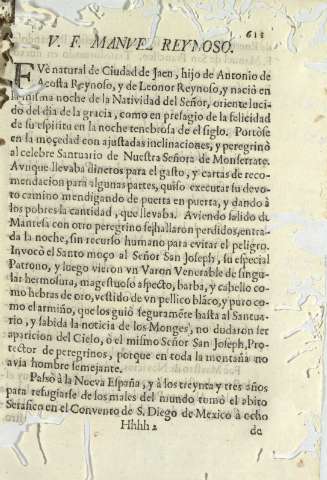 613
V. F. MANVEL REYNOSO.
FVè natural de Ciudad de Jaen, hijo de Antonio de
Acosta Reynoso, y de Leonor Reynoso, y nació en
la misma noche de la Natividad del Señor, oriente luci-
do del dia de la gracia, como en presagio de la felicidad
de su espiritu en la noche tenebrosa de el siglo. Portòse
en la mocedad con ajustadas inclinaciones, y peregrinò
al celebre Santuario de Nuestra Señora de Monserrate.
Aunque llevaba dineros para el gasto, y cartas de reco-
mendacion para algunas partes, quiso executar su devo-
to camino mendigando de puerta en puerta, y dando à
los pobres la cantidad, que llevaba. Aviendo salido de
Mantesa con otro peregrino se hallaron perdidos, entra-
da la noche, sin recurso humano para evitar el peligro.
Invocò el Santo moço al Señor San Joseph, su especial
Patrono, y luego vieron vn Varon Venerable de singu-
lar hermosura, magestuoso aspecto, barba, y cabello co-
mo hebras de oro, vestido de vn pellico blãco, y puro co-
mo el armiño, que los guiò seguramẽte hasta al Santua-
rio, y sabida la noticia de los Monges, no dudaron ser
aparicion del Cielo, ò el mismo Señor San Joseph, Pro-
tector de peregrinos, porque en toda la montaña no
avia hombre semejante.
Passò à la Nueva España, y à los treynta y tres años
para refugiarse de los males del mundo tomò el abito
Serafico en el Convento de S. Diego de Mexico à ocho
Hhhh 2
de